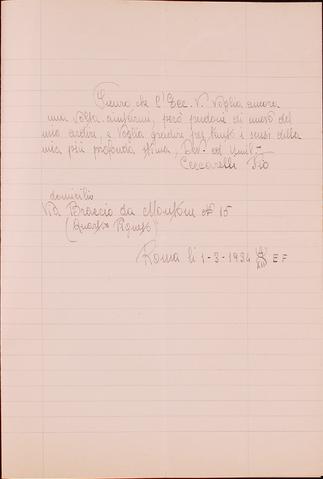 Sicuro che l'Ecc. V. voglia ancora
una volta aiutarmi, però perdoni di nuovo del
mio ardire, e voglia gradire per tanto i sensi della
mia più profonda stima, Dev. ed Umil-
Ceccarelli Pio
domicilio
Via Braccio da Montone N° 15
(Quarto Pigneto)
Roma li 1-3-1934 XII E F